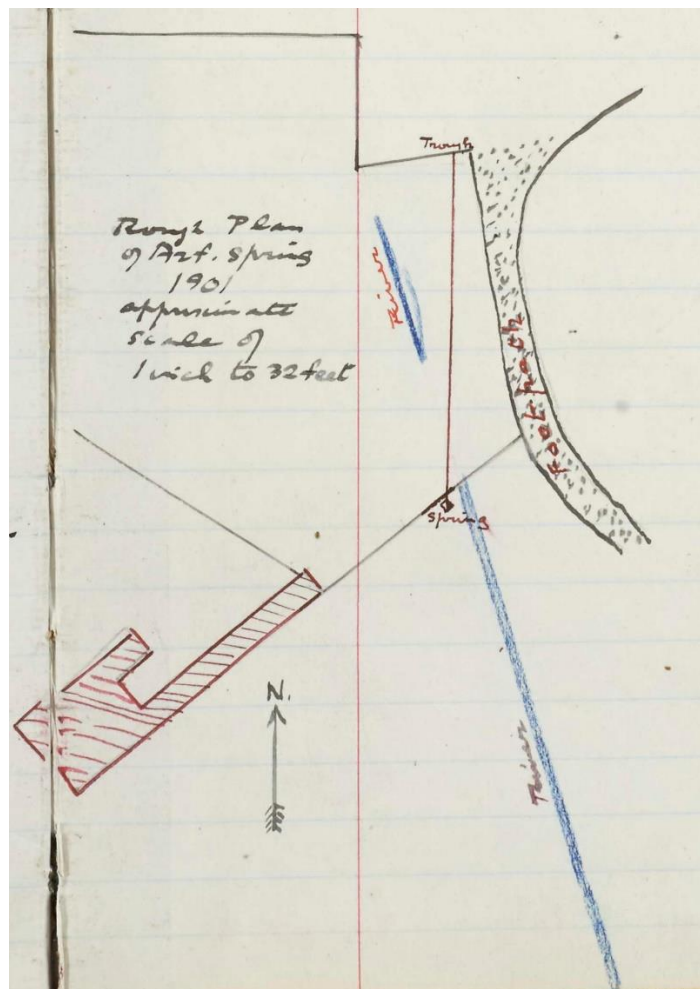 Trough
Rough Plan
of Arf. Spring
1901
approximate
scale of
1 inch to 32 feet
River
Footpath
Spring
N.
River